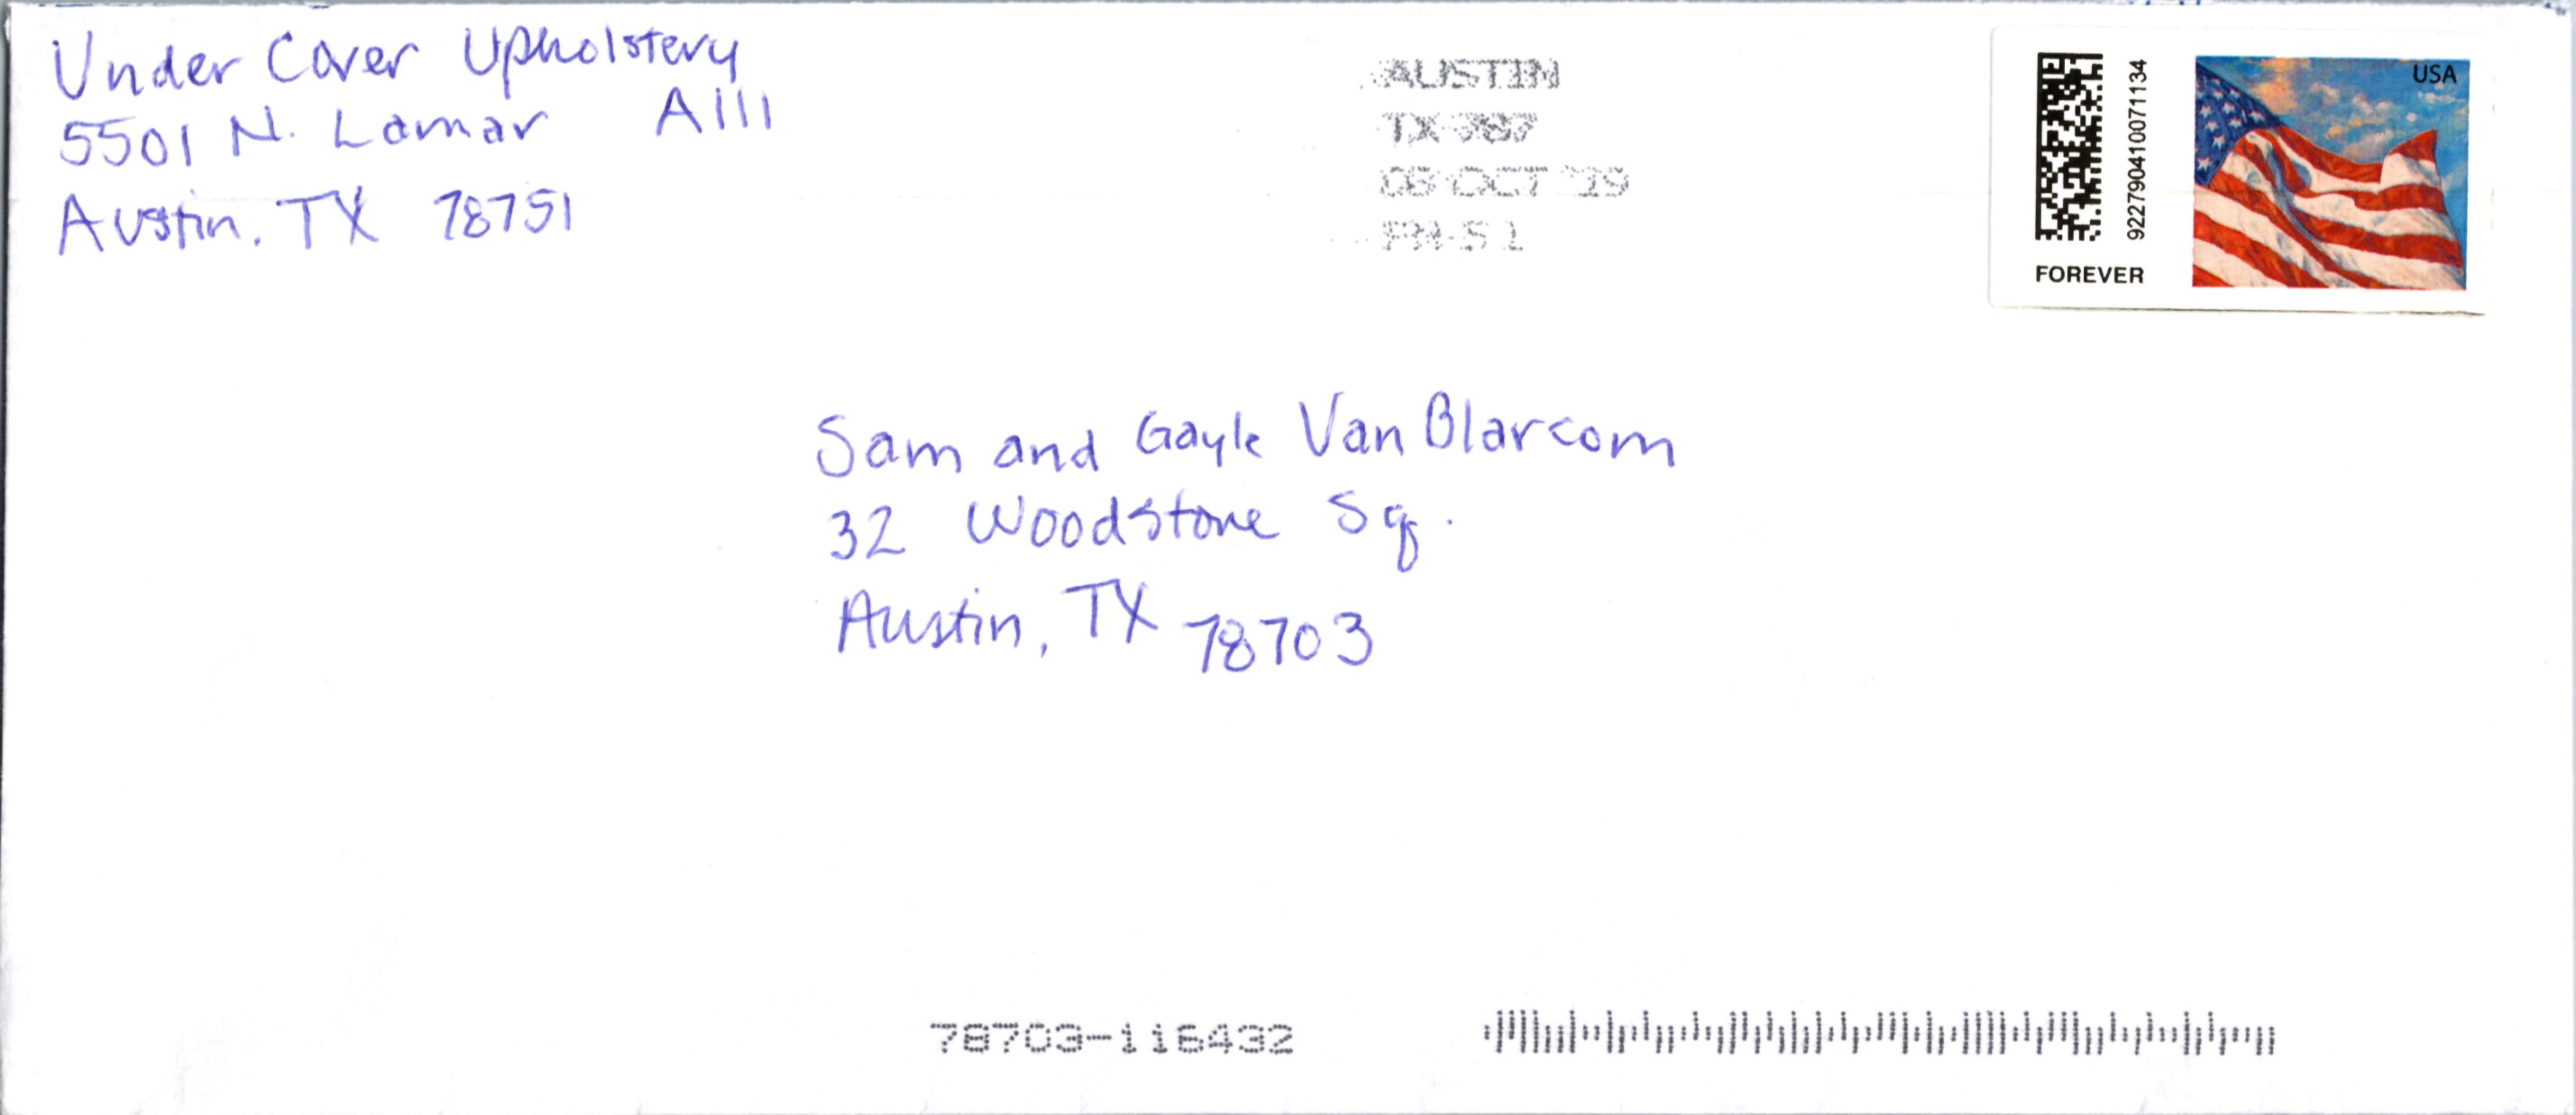 Under Cover Upholstery
5501 N. Lamar A111
Austin, TX 78751
AUSTIN
TX 787
OCT '19
PM 5 1
92279041007 1134
FOREVER
USA
Sam and Gayle Van Blarcom
32 Woodstone Sq.
Austin, TX 78703
78703-116432